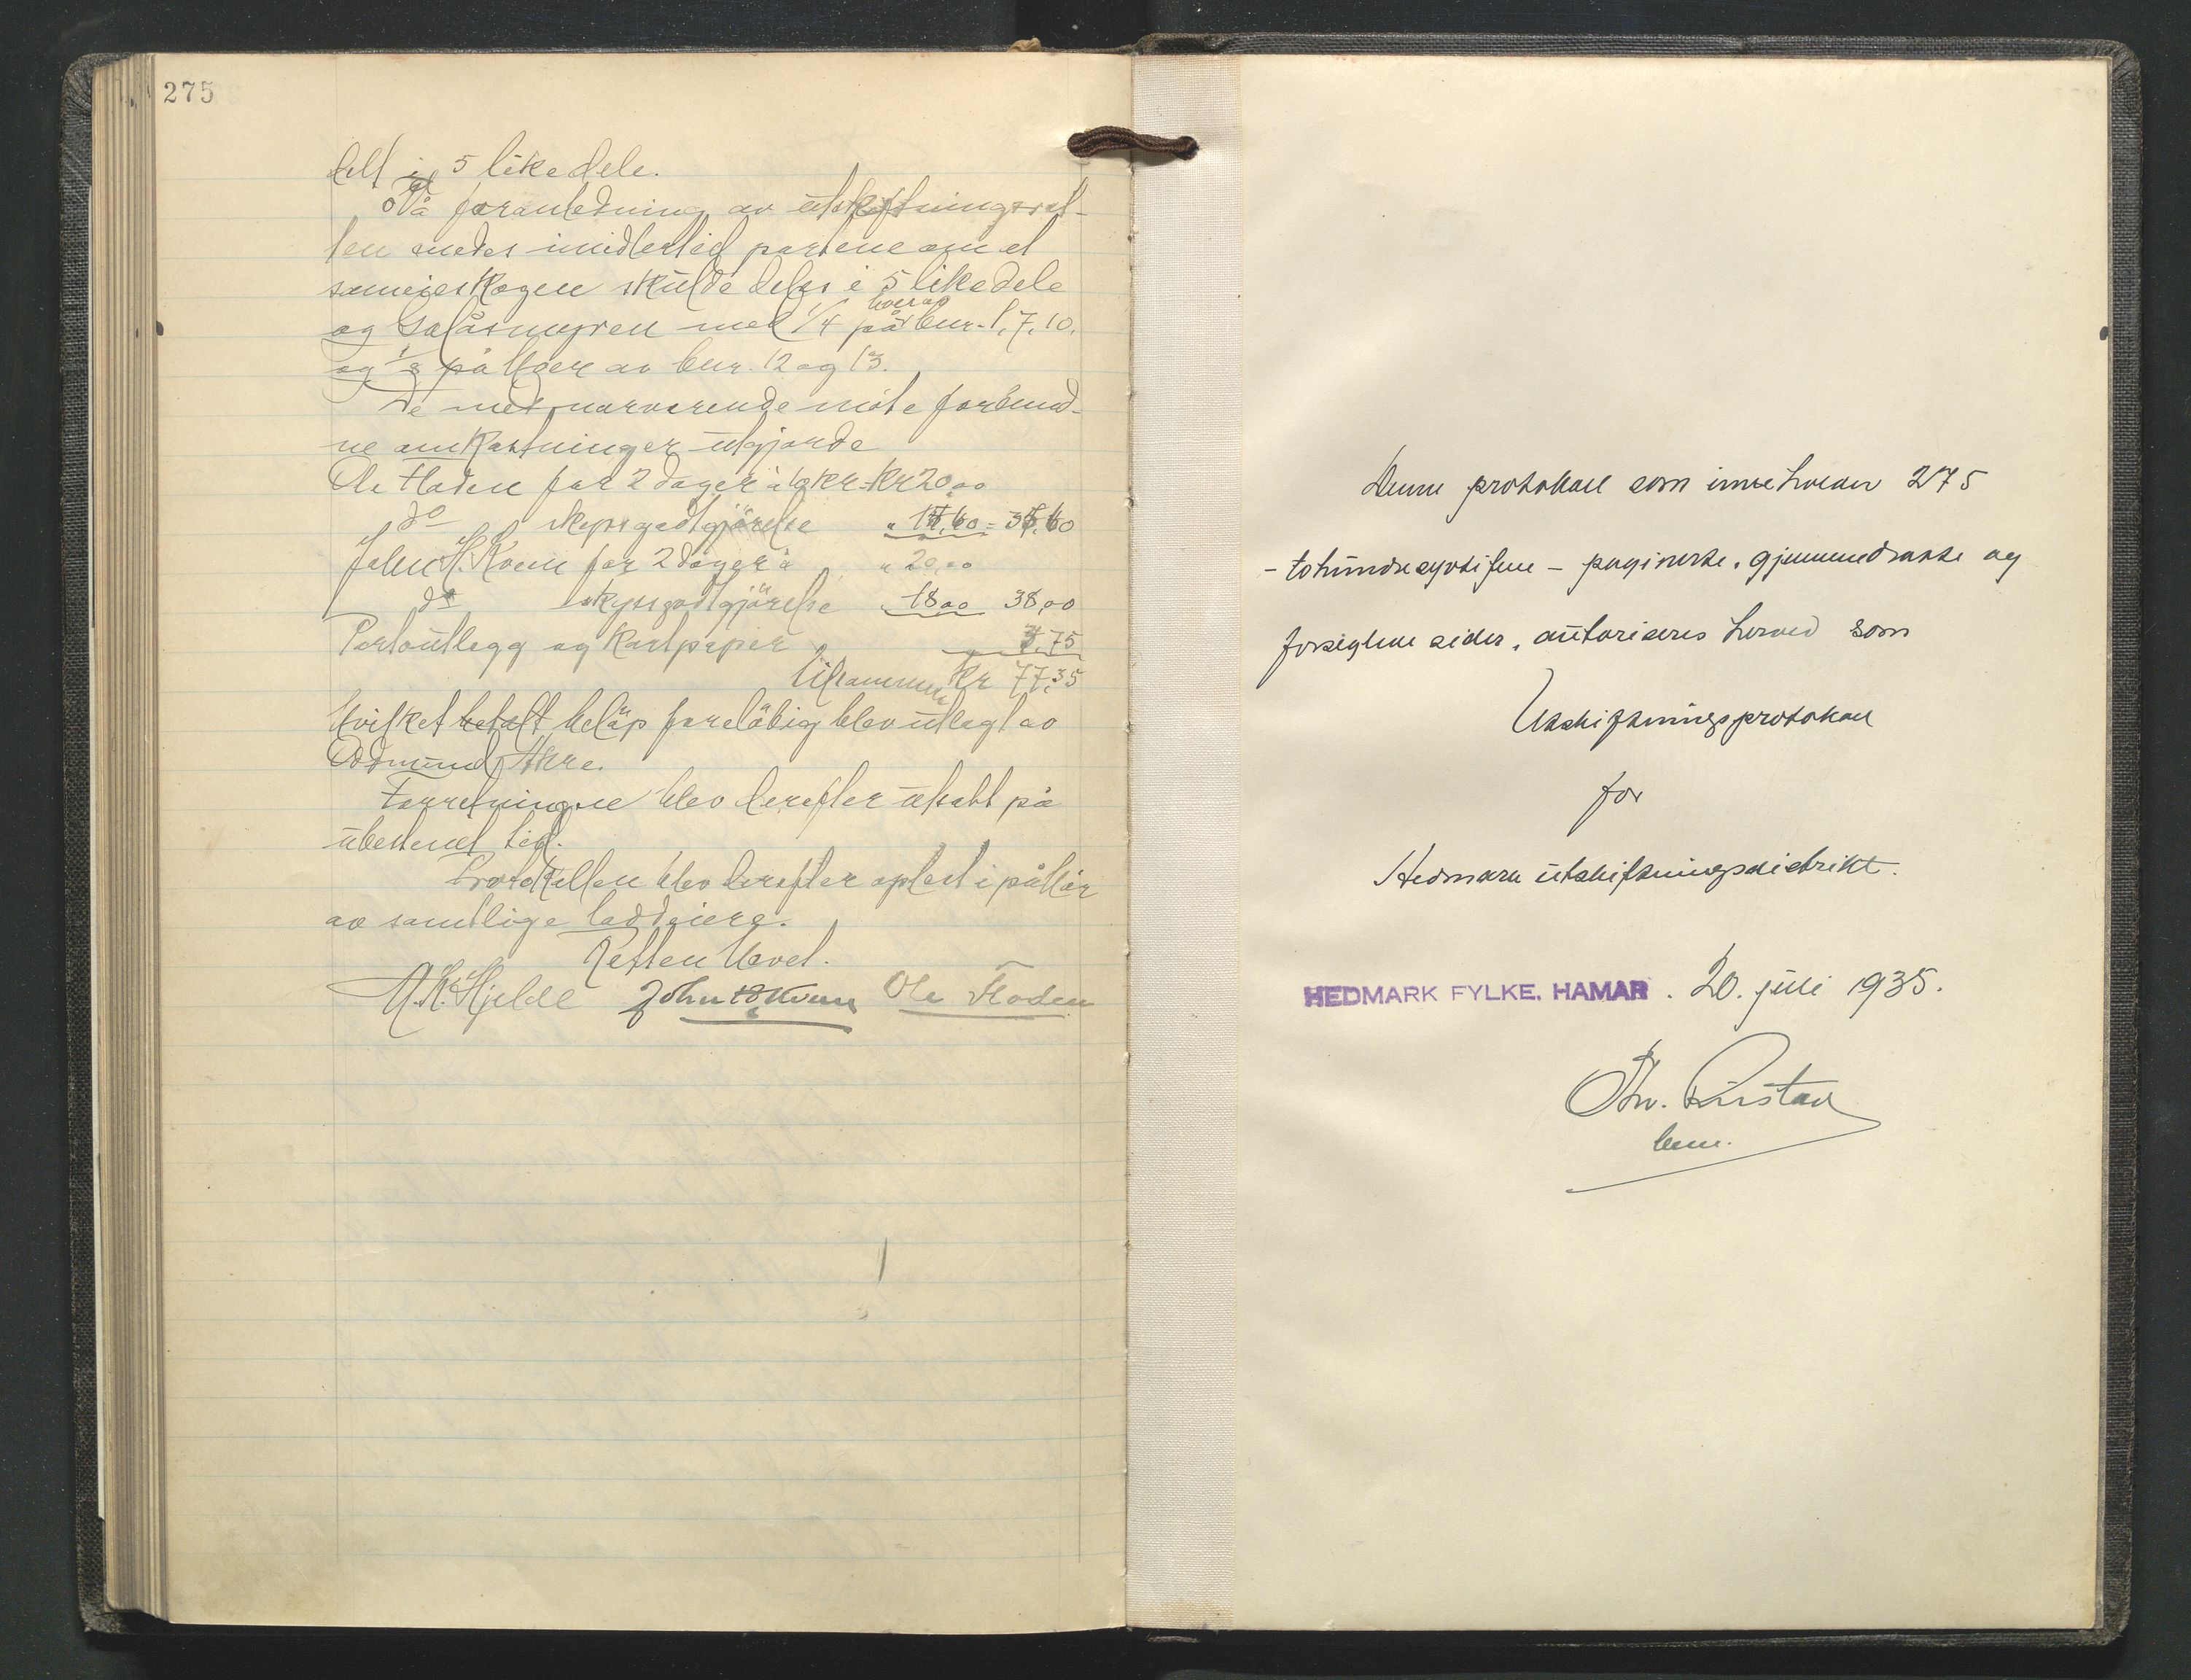 275
delt i 5 like dele.
På foranledning av utskiftningsret-
ten enedes imidlertid partene om at
sameieskogen skulde deles i 5 like dele
og Salåsmyren med 1/4 på hver av bnr. 1, 7, 10.
og 1/8 på hver av bnr. 12 og 13.
De med nærværende møte forbund-
ne omkostninger utgjorde
Ole Floden for 2 dager à 10 kr = kr 20,00
do skyssgodtgjörelse " 15,60 = 35,60
John H. Kvem for 2 dager à " 20,00
do skyssgodtgjörelse " 18,00 38,00
Portoutlegg og kartpapir " 3,75
tilsammen kr 77,35
Hvilket betalt belöp foreløbig blev utlagt av
Oddmund Akre.
Forretningen blev derefter utsatt på
ubestemt tid.
Protokollen blev derefter oplest i påhör
av samtlige loddeiere.
Retten hevet.
A. K. Hjelde John H Kvem Ole Floden
Denne protokoll som inneholder 275
- tohundreogsyttifem - paginerte, gjennemdradde og
forseglede sider, autoriseres herved som
Utskiftningsprotokoll
for
Hedmark utskiftningsdistrikt.
HEDMARK FYLKE, HAMAR. 20. juli 1935.
Rustad